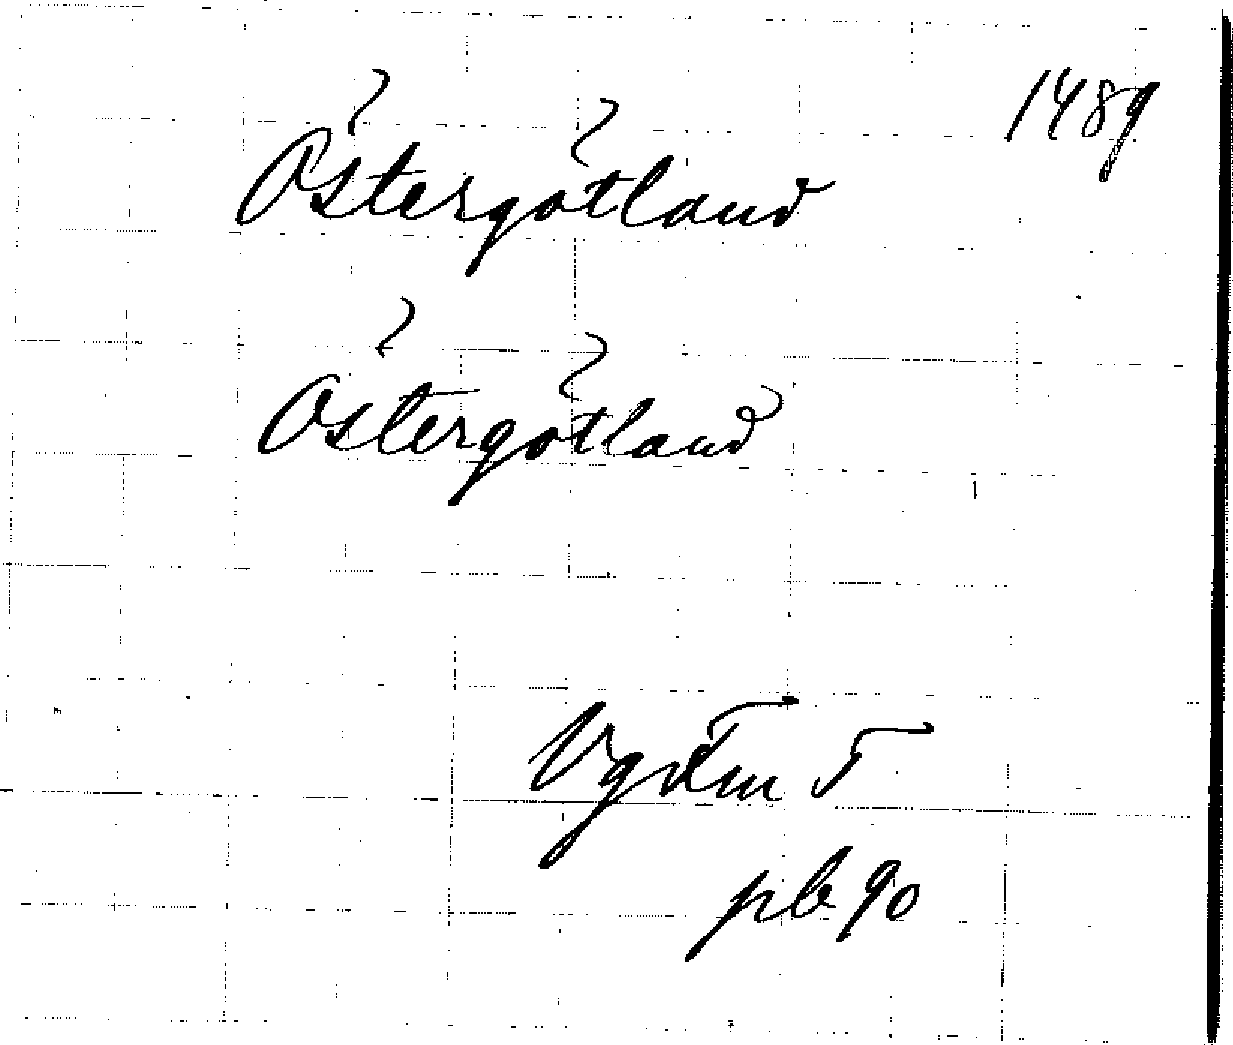 1489
Östergötland
Östergötland
pb 90